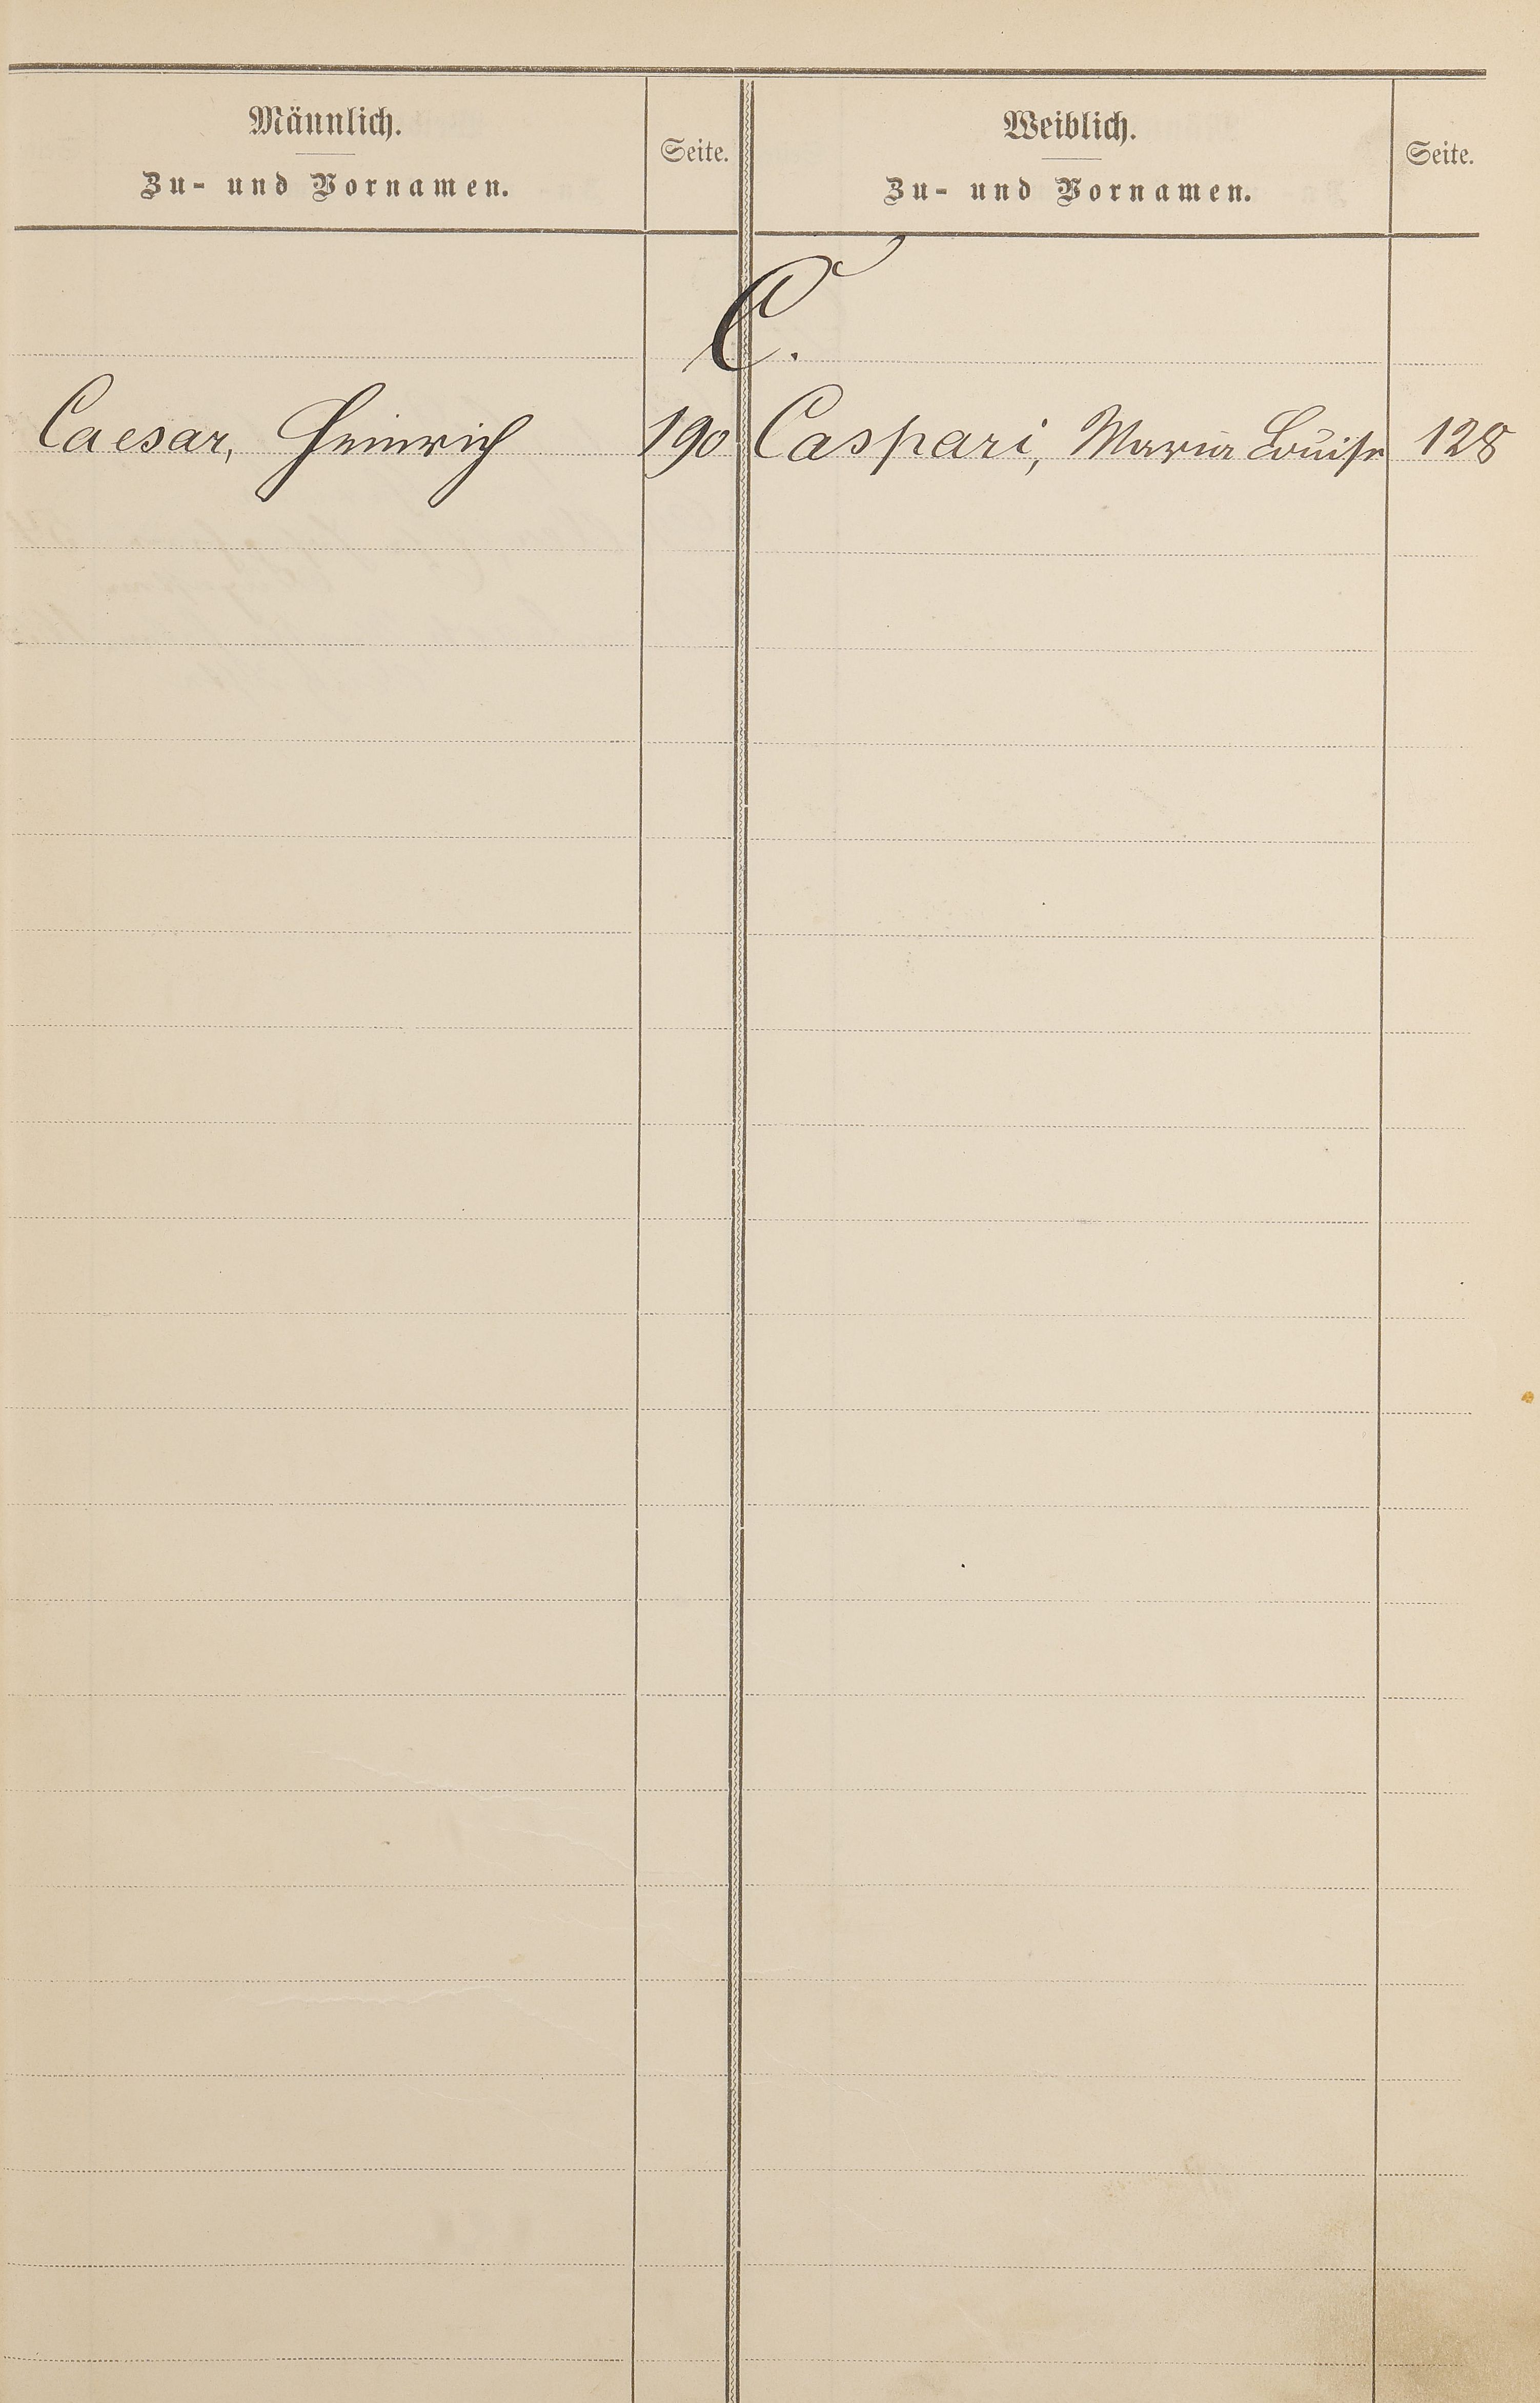 Männlich.
Zu- und Vornamen.
Seite.
Weiblich.
Zu- und Vornamen.
Seite.
C.
Caesar, Heinrich 190
Caspari, Maria Louise 128